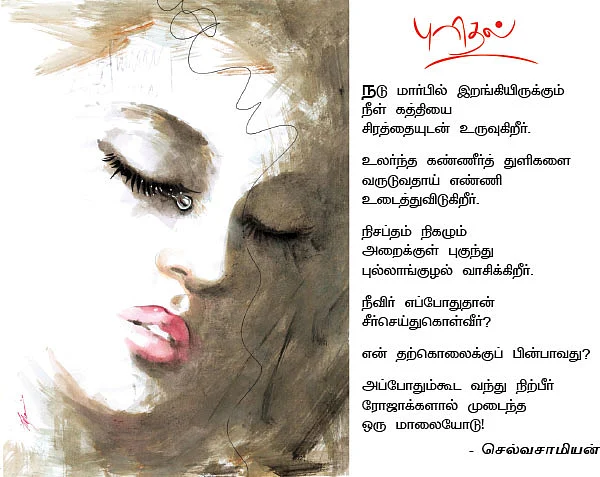 புரிதல்
நடு மார்பில் இறங்கியிருக்கும்
நீள் கத்தியை
சிரத்தையுடன் உருவுகிறீர்.
உலர்ந்த கண்ணீர்த் துளிகளை
வருடுவதாய் எண்ணி
உடைத்துவிடுகிறீர்.
நிசப்தம் நிகழும்
அறைக்குள் புகுந்து
புல்லாங்குழல் வாசிக்கிறீர்.
நீவிர் எப்போதுதான்
சீர்செய்துகொள்வீர்?
என் தற்கொலைக்குப் பின்பாவது?
அப்போதும்கூட வந்து நிற்பீர்
ரோஜாக்களால் முடைந்த
ஒரு மாலையோடு!
- செல்வசாமியன்